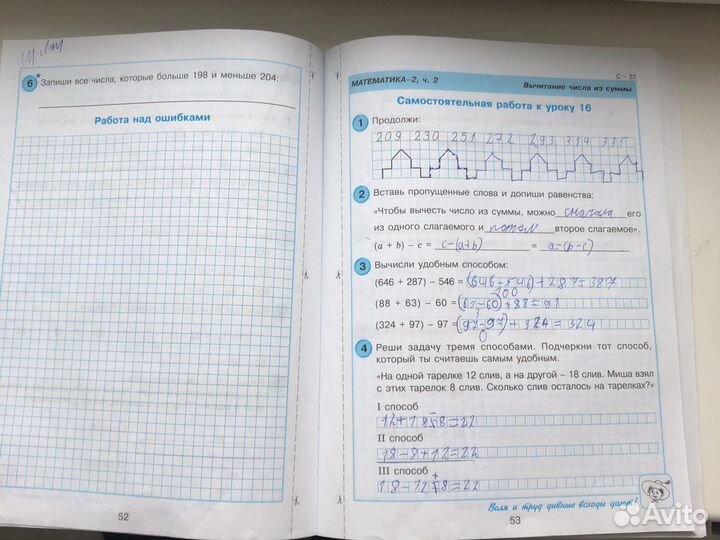 6* Запиши все числа, которые больше 198 и меньше 204:
Работа над ошибками
52
С – 23
МАТЕМАТИКА–2, ч. 2
Вычитание числа из суммы
Самостоятельная работа к уроку 16
1 Продолжи:
209 230 251 272 293 314 335
2 Вставь пропущенные слова и допиши равенства:
«Чтобы вычесть число из суммы, можно сначала его
из одного слагаемого и потом второе слагаемое».
(a + b) – c = c–(a+b) = a–(b–c)
3 Вычисли удобным способом:
(646 + 287) – 546 = (646–546)+287=387
100
(88 + 63) – 60 = (63–60)+88=91
3
(324 + 97) – 97 = (97–97)+324=324
0
4 Реши задачу тремя способами. Подчеркни тот способ,
который ты считаешь самым удобным.
«На одной тарелке 12 слив, а на другой – 18 слив. Миша взял
с этих тарелок 8 слив. Сколько слив осталось на тарелках?»
I способ
12+18–8=22
II способ
18–8+12=22
III способ
18–12+8=22
Воля и труд дивные всходы дают!
53
Avito